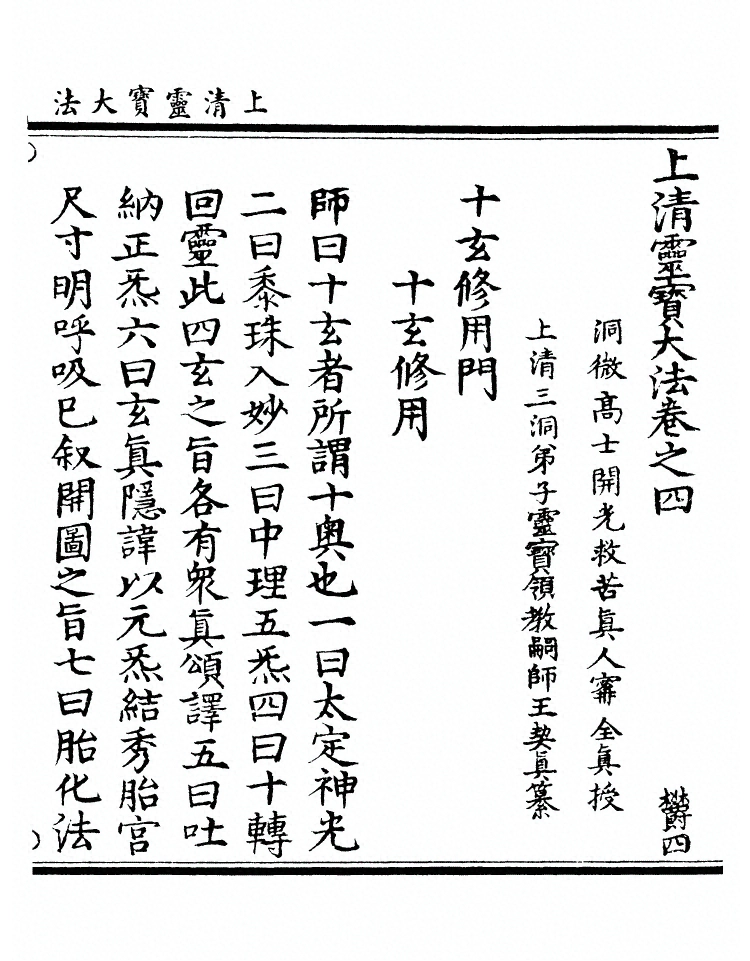 上清靈寶大法
上清靈寶大法卷之四
鬱四
洞微高士開光救苦眞人甯全眞授
上清三洞弟子靈寶領教嗣師王契眞纂
十玄修用門
十玄修用
師曰十玄者所謂十奧也一曰太定神光
二曰黍珠入妙三曰中理五炁四曰十轉
回靈此四玄之旨各有衆眞頌譯五曰吐
納正炁六曰玄眞隱諱以元炁結秀胎宮
尺寸明呼吸已叙開圖之旨七曰胎化法